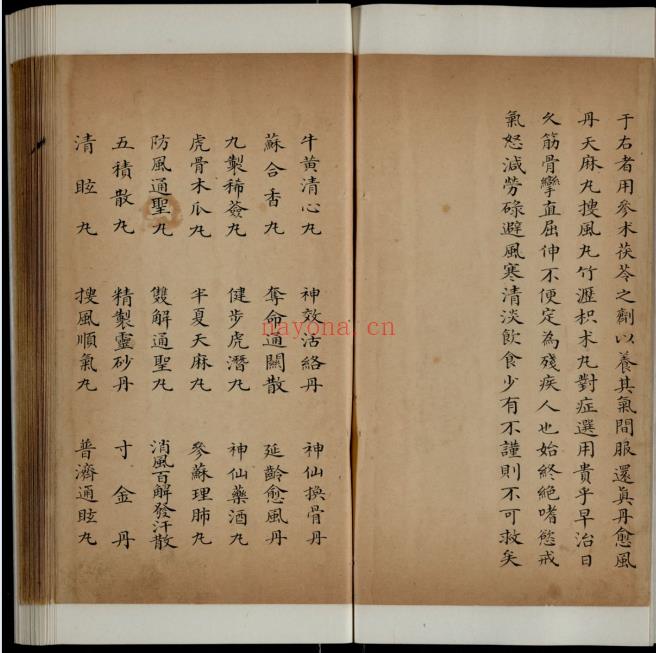 于右者用參术茯苓之劑以養其氣間服還真丹愈風
丹天麻丸搜風丸竹瀝枳术丸對症選用貴乎早治日
久筋骨攣直屈伸不便定為殘疾人也始終絕嗜慾戒
氣怒減勞碌避風寒清淡飲食少有不謹則不可救矣
牛黃清心丸 神效活絡丹 神仙換骨丹
蘇合香丸 奪命通關散 延齡愈風丹
九製稀簽丸 健步虎潛丸 神仙藥酒丸
虎骨木瓜丸 半夏天麻丸 參蘇理肺丸
防風通聖丸 雙解通聖丸 消風百解發汗散
五積散丸 精製靈砂丹 寸金丹
清眩丸 搜風順氣丸 普濟通眩丸
nayona.cn